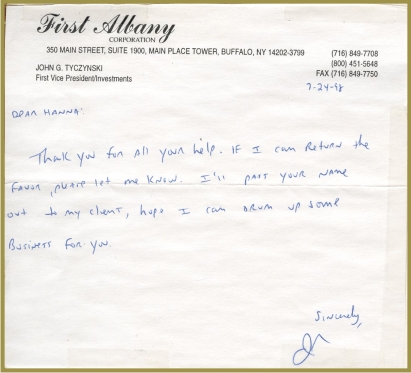 First Albany
CORPORATION
350 MAIN STREET, SUITE 1900, MAIN PLACE TOWER, BUFFALO, NY 14202-3799
(716) 849-7708
(800) 451-5648
FAX (716) 849-7750
JOHN G. TYCZYNSKI
First Vice President/Investments
7-24-98
DEAR HANNA:
Thank you for all your help. IF I can Return the
FAVOR, please let me know. I'll pass your name
out to my client, hope I can DRUM up some
Business for you.
Sincerely,